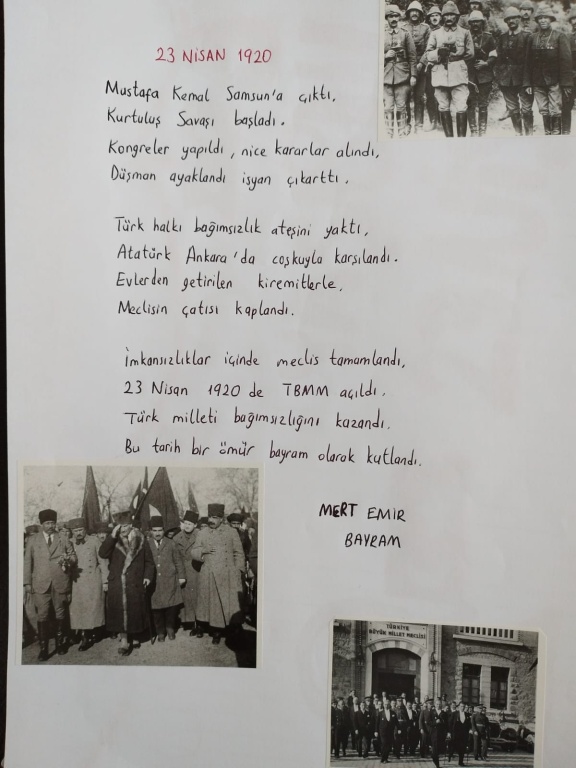 23 NİSAN 1920
Mustafa Kemal Samsun'a çıktı,
Kurtuluş Savaşı başladı.
Kongreler yapıldı, nice kararlar alındı,
Düşman ayaklandı isyan çıkarttı.
Türk halkı bağımsızlık ateşini yaktı,
Atatürk Ankara'da coşkuyla karşılandı.
Evlerden getirilen kiremitlerle,
Meclisin çatısı kaplandı.
İmkansızlıklar içinde meclis tamamlandı,
23 Nisan 1920 de TBMM açıldı.
Türk milleti bağımsızlığını kazandı.
Bu tarih bir ömür bayram olarak kutlandı.
MERT EMİR
BAYRAM
TÜRKİYE
BÜYÜK MİLLET MECLİSİ